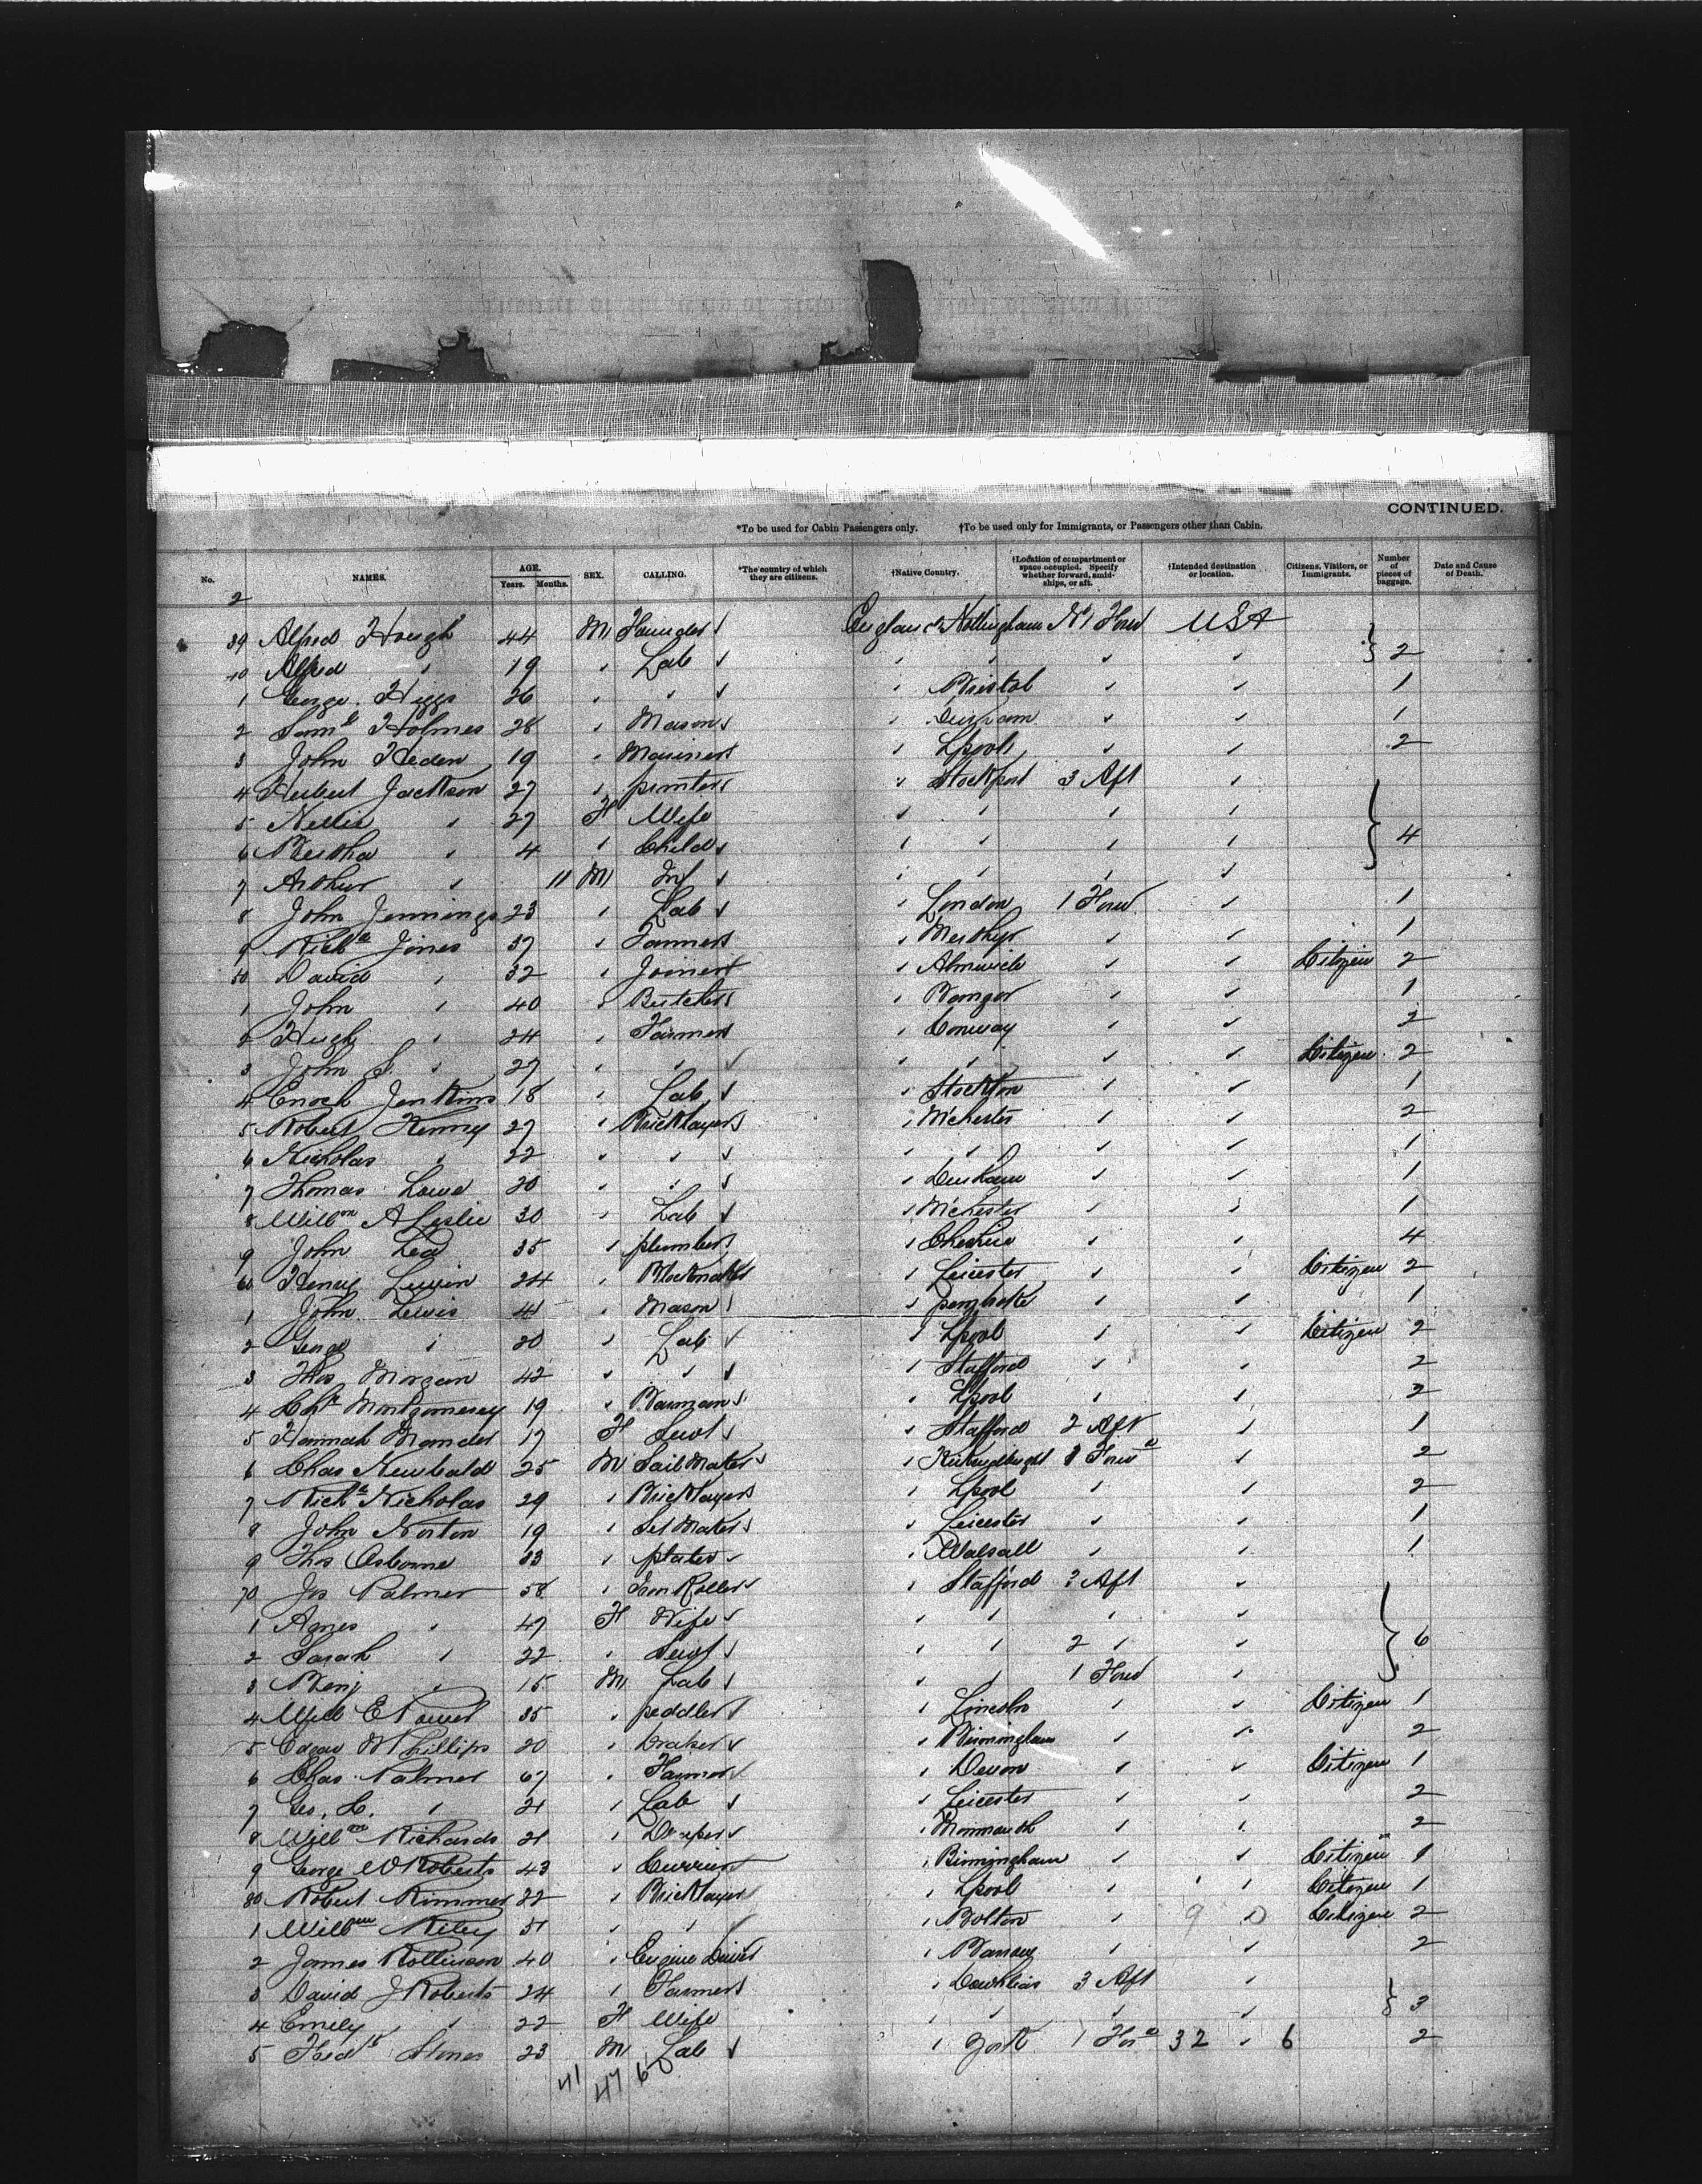 CONTINUED.
*To be used for Cabin Passengers only. †To be used only for Immigrants, or Passengers other than Cabin.
No. NAMES. AGE. Years. Months. SEX. CALLING. *The country of which they are citizens. †Native Country. †Location of compartment or space occupied. Specify whether forward, amidships, or aft. †Intended destination or location. Citizens, Visitors, or Immigrants. Number of pieces of baggage. Date and Cause of Death.
2
39 Alfred Hough 44 M England Nottingham No 1 Forw USA
40 Alfred " 19 " Lab " " " " 2
1 George Higgs 26 " " " Bristol " " 1
2 Saml Holmes 28 " Mason " Durham " " 1
3 John Heden 19 " Mariner " Lpool " " 2
4 Herbert Jackson 27 " printer " Stockport 3 Aft "
5 Nellie " 27 F Wife " " " "
6 Bertha " 4 " Child " " " " 4
7 Arthur " 11 M Inf " " " "
8 John Jennings 23 " Lab " London 1 Forw " 1
9 Richd Jones 37 " Farmer " Merthyr " " 1
50 David " 32 " Joiner " Alnwick " " Citizen 2
1 John " 40 " Butcher " Bangor " " 1
2 Hugh " 24 " Farmer " Conway " " 2
3 John S. " 27 " " " " " " Citizen 2
4 Enoch Jenkins 18 " Lab " Stockton " " 1
5 Robert Kenny 27 " Bricklayer " M'chester " " 2
6 Nicholas " 22 " " " " " " 1
7 Thomas Lowe 20 " " " Durham " " 1
8 Willm A Leslie 30 " Lab " M'chester " " 1
9 John Lea 35 " plumber " Cheshire " " 4
60 Henry Lewin 24 " " Leicester " " Citizen 2
1 John Lewis 41 " Mason " pembroke " " 1
2 George " 20 " Lab " Lpool " " Citizen 2
3 Thos Morgan 42 " " " Stafford " " 2
4 Chr Montgomerey 19 " Barman " Lpool " " 2
5 Hannah Mander 17 F Servt " Stafford 2 Aft " 1
6 Chas Newbald 25 M Sail Maker " Kirkcudbright 1 Forwd " 2
7 Richd Nicholas 29 " Bricklayer " Lpool " " 2
8 John Norton 19 " Maker " Leicester " " 1
9 Thos Osborne 33 " plater " Walsall " " 1
70 Jos Palmer 58 " Iron Roller " Stafford 3 Aft "
1 Agnes " 47 F Wife " " " "
2 Sarah " 22 " Servt " " 2 " " 6
3 Benj " 15 M Lab " " 1 Forw "
4 Will E Power 35 " peddler " Lincoln " " Citizen 1
5 Edgar W Phillips 20 " " Birmingham " " 2
6 Chas Palmer 67 " Farmer " Devon " " Citizen 1
7 Geo. H. " 21 " Lab " Leicester " " 2
8 Willm Richards 21 " Draper " Monmouth " " 2
9 George W Roberts 43 " Currier " Birmingham " " Citizen 1
80 Robert Rimmer 22 " Bricklayer " Lpool " " Citizen 1
1 Willm Riley 31 " " " Bolton " 9 0 Citizen 2
2 James Rollinson 40 " Engine Driver " " " 2
3 David J Roberts 24 " Farmer " Dowlais 3 Aft "
4 Emily " 22 F Wife " " " " 3
5 Fredk Stones 23 M Lab " York 1 Ford 32 " 6 2
41 47 60